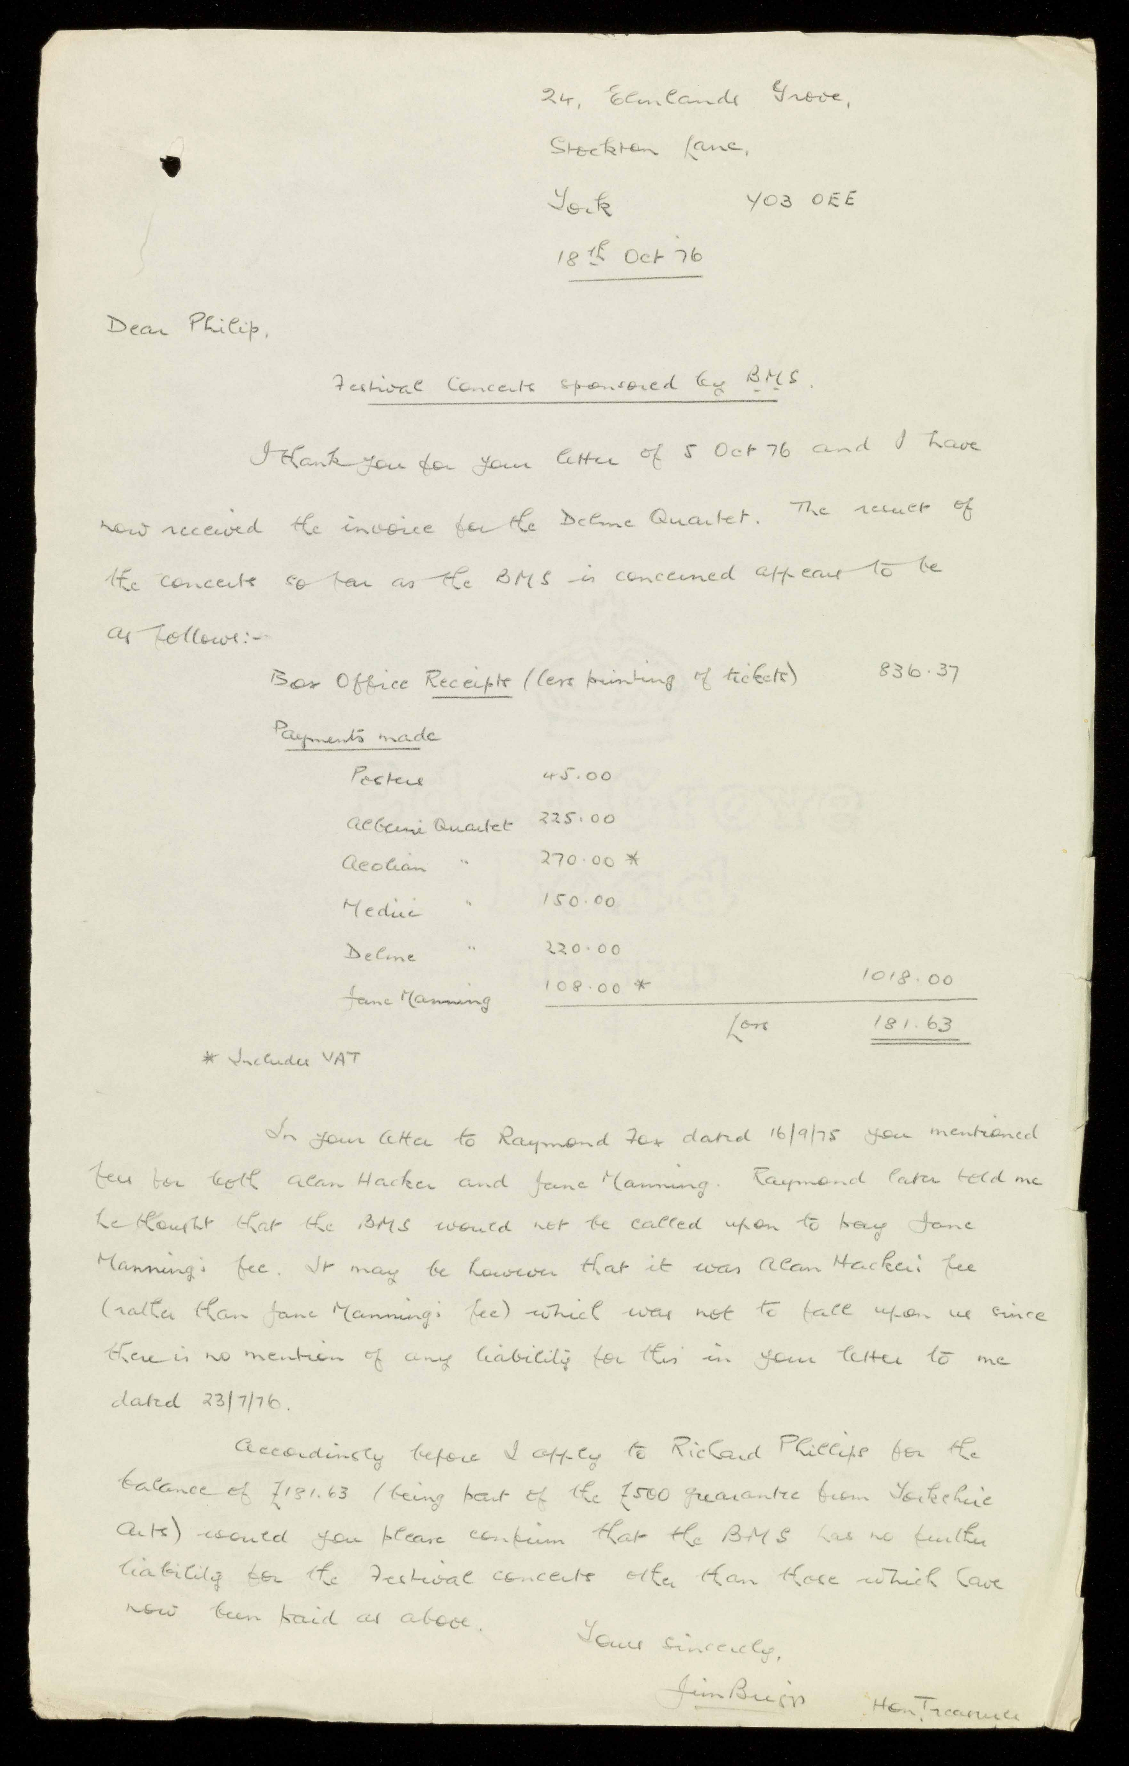 24, Elmlands Grove,
Stockton Lane,
York YO3 OEE
18th Oct 76
Dear Philip,
Festival Concerts sponsored by BMS.
I thank you for your letter of 5 Oct 76 and I have
now received the invoice for the Delme Quartet. The result of
the concerts so far as the BMS is concerned appears to be
as follows:-
Box Office Receipts (less printing of tickets) 836.37
Payments made
Posters 45.00
Alberni Quartet 225.00
Aeolian " 270.00 *
Medici " 150.00
Delme " 220.00
Jane Manning 108.00 * 1018.00
Loss 181.63
* Includes VAT
In your letter to Raymond Fox dated 16/9/75 you mentioned
fees for both Alan Hacker and Jane Manning. Raymond later told me
he thought that the BMS would not be called upon to pay Jane
Manning's fee. It may be however that it was Alan Hacker's fee
(rather than Jane Manning's fee) which was not to fall upon us since
there is no mention of any liability for this in your letter to me
dated 23/7/76.
Accordingly before I apply to Richard Phillips for the
balance of £181.63 (being part of the £500 guarantee from Yorkshire
Arts) would you please confirm that the BMS has no further
liability for the Festival concerts other than those which have
now been paid as above.
Yours sincerely,
Jim Briggs
Hon. Treasurer